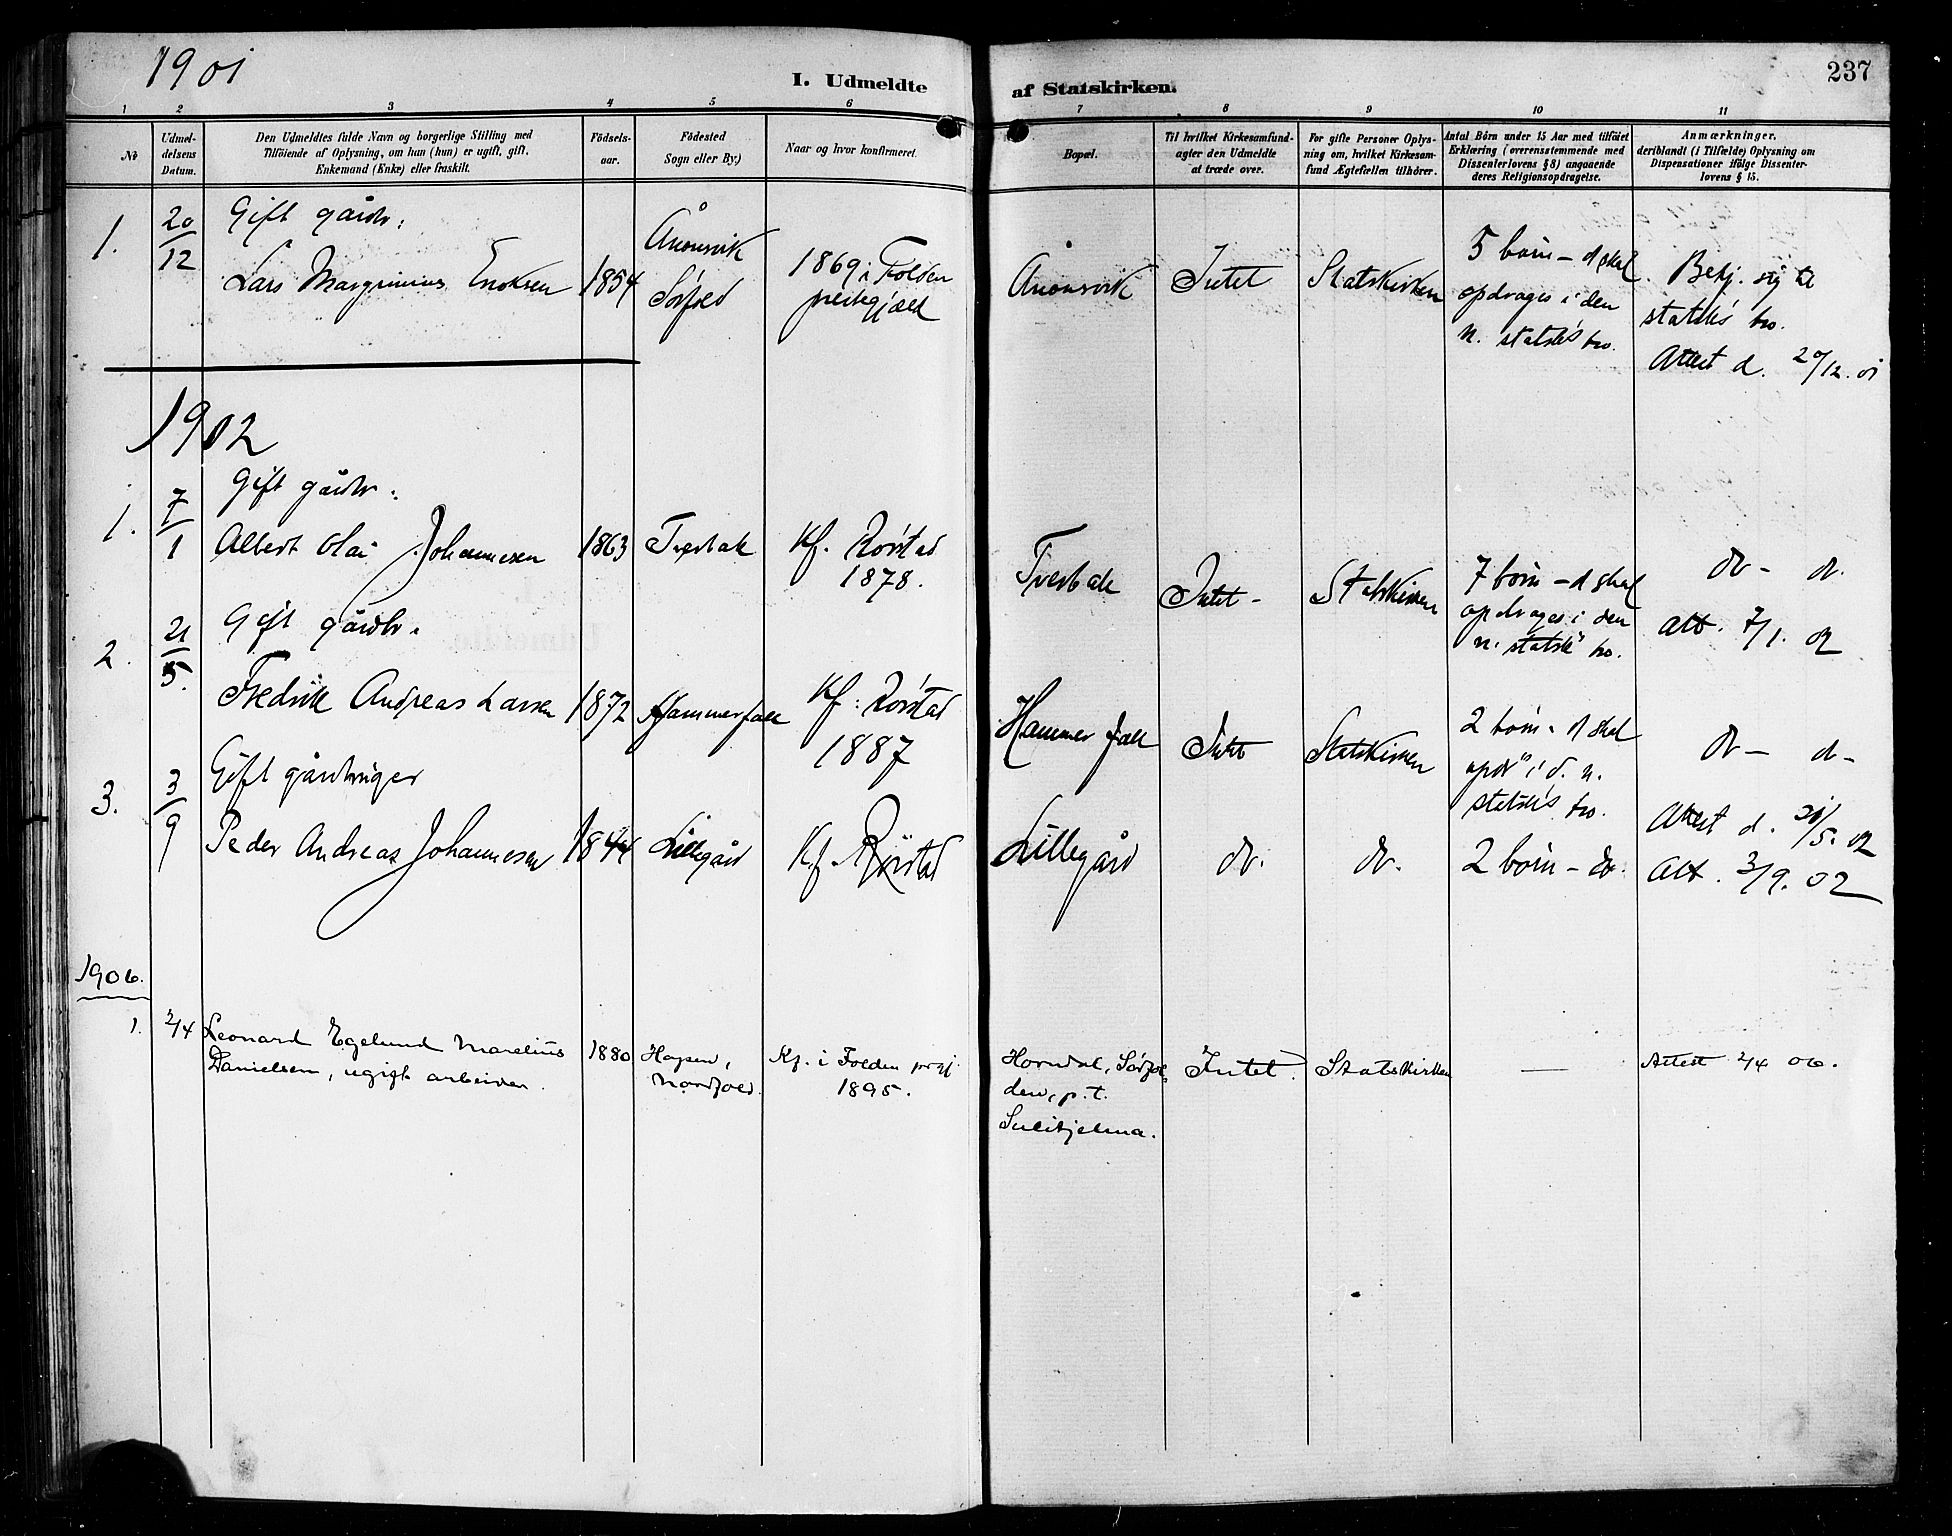 1901
I. Udmeldte af Statskirken.
237
1 2 3 4 5 6 7 8 9 10 11
No
Udmel-
delsens
Datum.
Den Udmeldtes fulde Navn og borgerlige Stilling med
Tilföiende af Oplysning, om han (hun) er ugift, gift,
Enkemand (Enke) eller fraskilt.
Födsels-
aar.
Födested
Sogn eller By.)
Naar og hvor konfirmeret.
Bopæl.
Til hvilket Kirkesamfund-
agter den Udmeldte
at træde over.
For gifte Personer Oplys-
ning om, hvilket Kirkesam-
fund Ægtefællen tilhörer.
Antal Börn under 15 Aar med tilföiet
Erklæring (overensstemmende med
Dissenterlovens § 8) angaaende
deres Religionsopdragelse.
Anmærkninger,
deriblandt (i Tilfælde) Oplysning om
Dispensationer ifölge Dissenter-
lovens § 15.
1.
20/12
Gift gårdbr:
Lars Enoksen
1854
Ånonsvik
Sørfold
1869 i Folden
prestegjæld
Ånonsvik
Intet
Statskirken
5 børn – d skal
opdrages i den
n. statsk's tro.
Bekj. sig til
statsk's tro.
Attest d. 20/12.01
1902
1.
7/1
Gift gårdbr:
Albert Olai Johannesen
1863
Tverbak
Kf. Rørstad
1878.
Tverbak
Intet –
Statskirken
7 børn – d skal
opdrages i den
n. statsk" tro.
do – do.
Att. 7/1. 02
2.
21/5.
Gift gårdbr.
Fredrik Andreas Larsen
1872
Hammerfall
Kf: Rørstad
1887
Hammerfall
Intet
Statskirken
2 børn. d skal
opdr" i d. n.
statsk's tro.
do – d–
Attest d. 21/5. 02
3.
3/9
Gift gårdbruger
Peder Andreas Johannesen
1844
Lillegård
Kf. Rørstad
Lillegård
do.
do.
2 børn – do.
Att. 3/9. 02
1906.
1.
2/4
Leonard Egelund Marelius
Danielsen, ugift arbeider.
1880
Nordfold.
Kf. i Folden prgj.
1895.
Horndal, Sørfol-
den, p.t.
Sulitjelma.
Intet.
Statskirken
—
Attest 2/4 06.